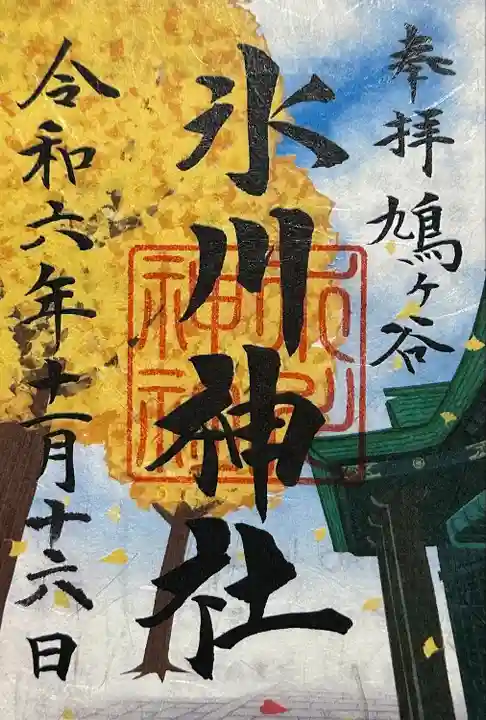 奉拝 鳩ヶ谷
氷川神社
氷川神社
令和六年十一月十六日